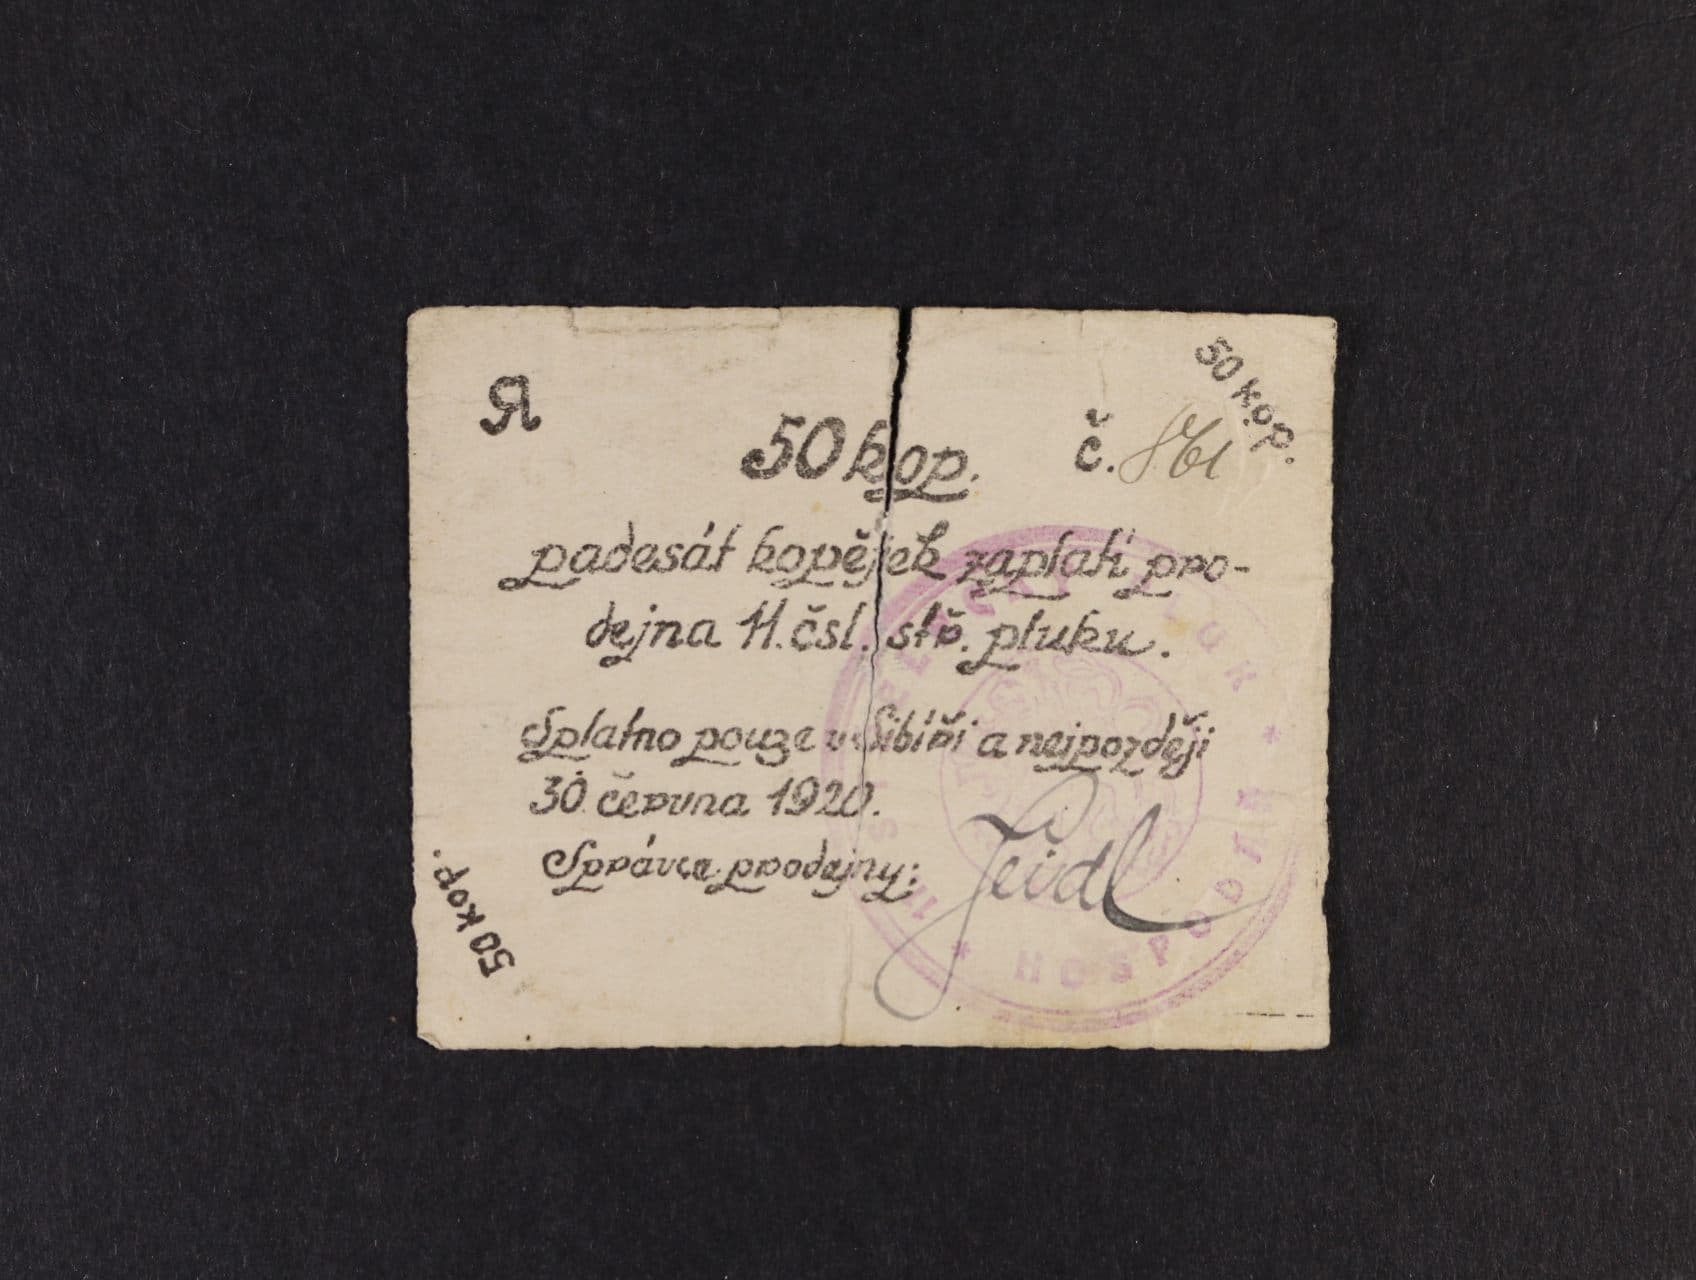 Я
50 kop.
50 kop. č. 861
padesát kopějek zaplatí pro-
dejna 11. čsl. stř. pluku.
Splatno pouze v Sibíři a nejpozději
30. června 1920.
Správce prodejny: Seidl
50 kop.
PLUK * HOSPODÁŘ *